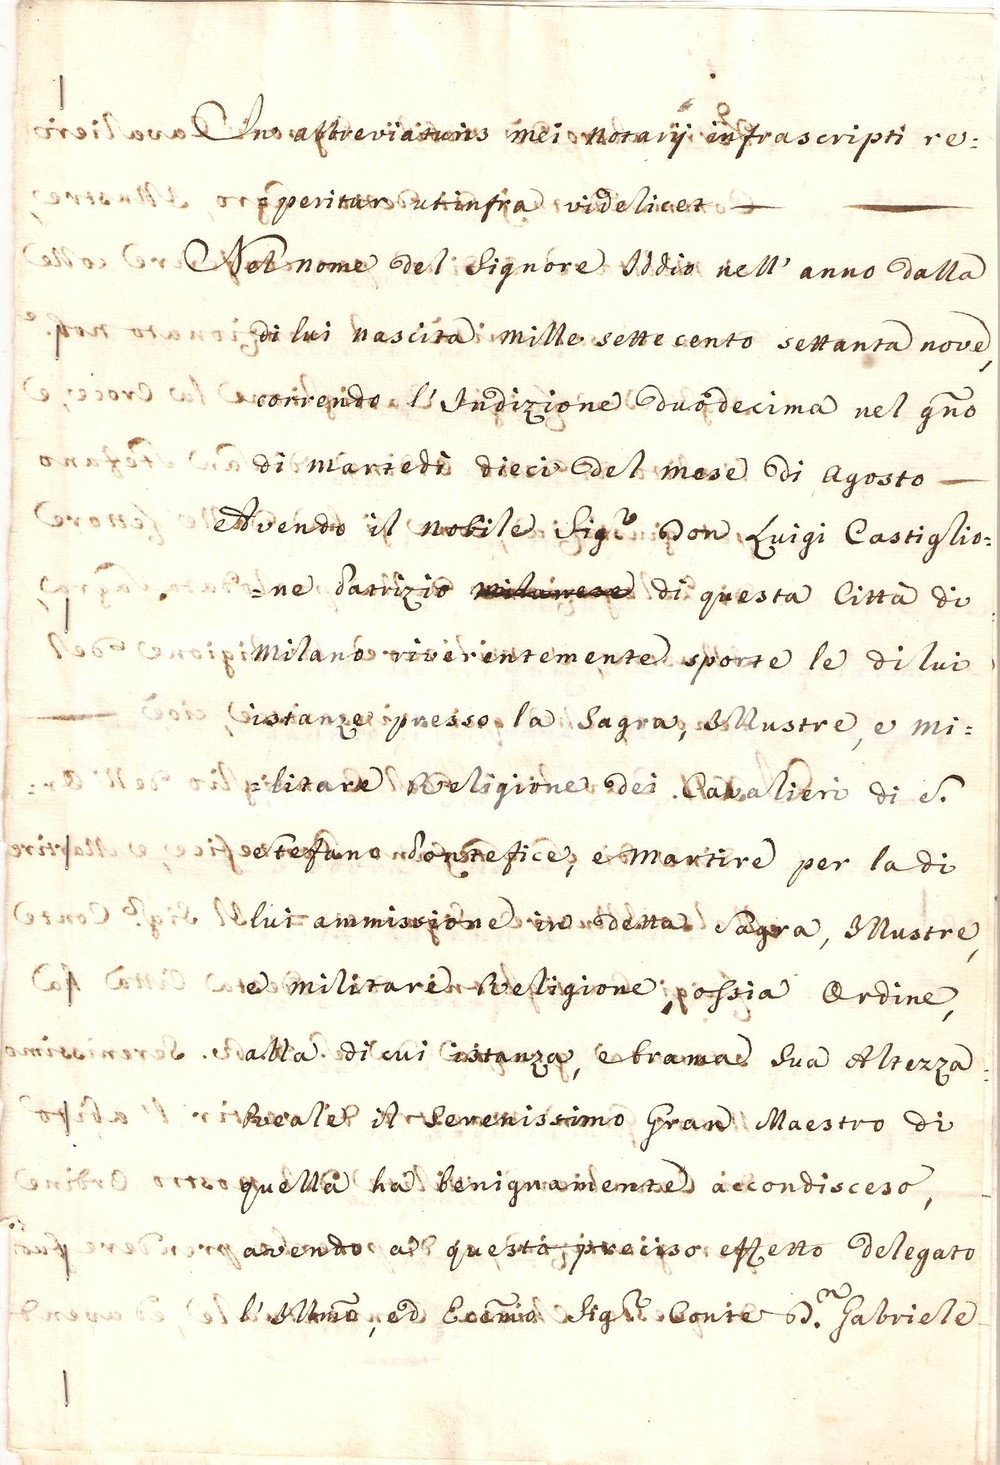 In abbreviaturis mei notarij infrascripti re=
peritur ut infra videlicet —
Nel nome del Signore Iddio nell' anno dalla
di lui nascita mille sette cento settanta nove,
correndo l'Indizione duodecima nel gño
di martedì dieci del mese di Agosto —
Avendo il nobile Sigr Don Luigi Castiglio=
=ne Patrizio milanese di questa Città di
Milano riverentemente sporte le di lui
istanze presso la Sagra, Illustre, e mi=
=litare Religione dei Cavalieri di S.
Stefano Pontefice, e Martire per la di
lui ammissione in detta Sagra, Illustre,
e militare Religione, ossia Ordine,
alla di cui istanza, e brama Sua Altezza
Reale il Serenissimo Gran Maestro di
quella ha benignamente accondisceso,
avendo a questo preciso effetto delegato
l'Illmõ, ed Eccmõ Sigr Conte D.n Gabriele